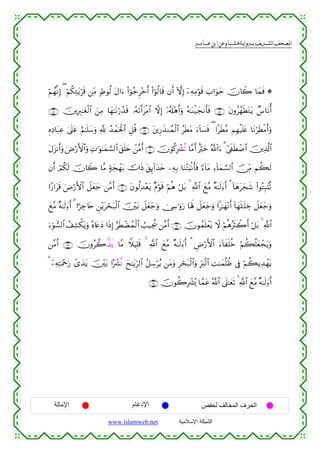 المصحف الشريف برواية هشام عن ابن عامر
* فَمَا كَانَ جَوَابَ قَوْمِهِۦٓ إِلَّآ أَن قَالُوٓا۟ أَخْرِجُوٓا۟ ءَالَ لُوطٍ مِّن قَرْيَتِكُمْ ۖ إِنَّهُمْ
أُنَاسٌ يَتَطَهَّرُونَ ۝ فَأَنجَيْنَٰهُ وَأَهْلَهُۥٓ إِلَّا ٱمْرَأَتَهُۥ قَدَّرْنَٰهَا مِنَ ٱلْغَٰبِرِينَ ۝
وَأَمْطَرْنَا عَلَيْهِم مَّطَرًا ۖ فَسَآءَ مَطَرُ ٱلْمُنذَرِينَ ۝ قُلِ ٱلْحَمْدُ لِلَّهِ وَسَلَٰمٌ عَلَىٰ عِبَادِهِ
ٱلَّذِينَ ٱصْطَفَىٰٓ ۗ ءَآللَّهُ خَيْرٌ أَمَّا تُشْرِكُونَ ۝ أَمَّنْ خَلَقَ ٱلسَّمَٰوَٰتِ وَٱلْأَرْضَ وَأَنزَلَ
لَكُم مِّنَ ٱلسَّمَآءِ مَآءً فَأَنۢبَتْنَا بِهِۦ حَدَآئِقَ ذَاتَ بَهْجَةٍ مَّا كَانَ لَكُمْ أَن
تُنۢبِتُوا۟ شَجَرَهَآ ۗ أَءِلَٰهٌ مَّعَ ٱللَّهِ ۚ بَلْ هُمْ قَوْمٌ يَعْدِلُونَ ۝ أَمَّن جَعَلَ ٱلْأَرْضَ قَرَارًا
وَجَعَلَ خِلَٰلَهَآ أَنْهَٰرًا وَجَعَلَ لَهَا رَوَٰسِىَ وَجَعَلَ بَيْنَ ٱلْبَحْرَيْنِ حَاجِزًا ۗ أَءِلَٰهٌ مَّعَ
ٱللَّهِ ۚ بَلْ أَكْثَرُهُمْ لَا يَعْلَمُونَ ۝ أَمَّن يُجِيبُ ٱلْمُضْطَرَّ إِذَا دَعَاهُ وَيَكْشِفُ ٱلسُّوٓءَ
وَيَجْعَلُكُمْ خُلَفَآءَ ٱلْأَرْضِ ۗ أَءِلَٰهٌ مَّعَ ٱللَّهِ ۚ قَلِيلًا مَّا يَذَّكَّرُونَ ۝ أَمَّن
يَهْدِيكُمْ فِى ظُلُمَٰتِ ٱلْبَرِّ وَٱلْبَحْرِ وَمَن يُرْسِلُ ٱلرِّيَٰحَ نُشْرًۢا بَيْنَ يَدَىْ رَحْمَتِهِۦٓ ۗ
أَءِلَٰهٌ مَّعَ ٱللَّهِ ۚ تَعَٰلَى ٱللَّهُ عَمَّا يُشْرِكُونَ ۝
الحرف المخالف لحفص الإدغام الإمالة
الشبكة الإسلامية www.islamweb.net